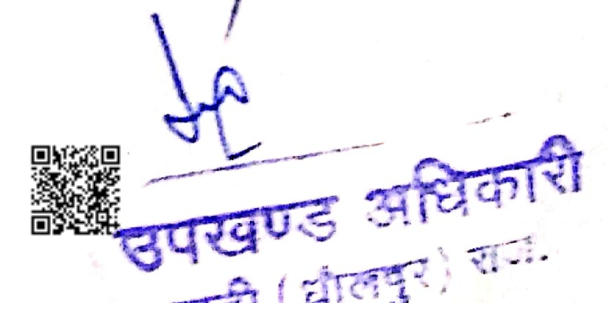 उपखण्ड अधिकारी
(धौलपुर) राज.